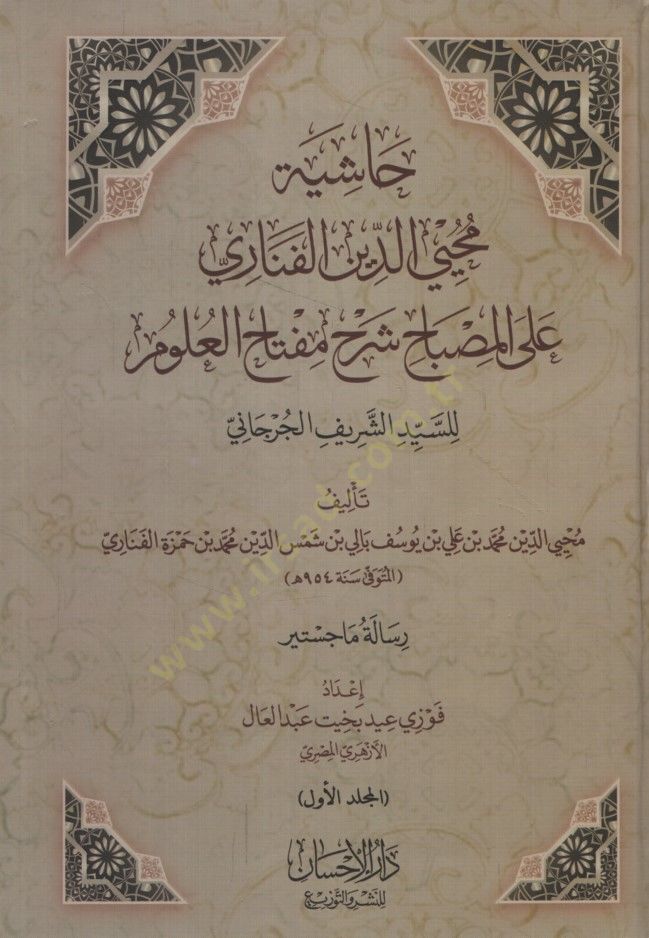 حَاشِيَة
مُحْيِي الدِّين الفَنَارِيّ
عَلَى المِصْبَاحِ شَرْحِ مِفْتَاحِ العُلُومِ
لِلسَّيِّدِ الشَّرِيفِ الجُرْجَانِيّ
تَأْلِيفُ
مُحْيِي الدِّيْن مُحَمَّد بْن عَلِي بْن يُوسُف بَالِي بْن شَمْسِ الدِّيْن مُحَمَّد بْن حَمْزَة الفَنَارِيّ
(المُتَوَفَّى سَنَة ٩٥٤هـ)
رِسَالَةُ مَاجِسْتِير
إِعْدَادُ
فَوْزِي عِيد بَخِيت عَبْد العَال
الأَزْهَرِيّ المِصْرِيّ
(المجلد الأول)
دَارُ الإِحْسَان
لِلنَّشْرِ وَالتَّوْزِيْعِ
www.irsad.com.tr